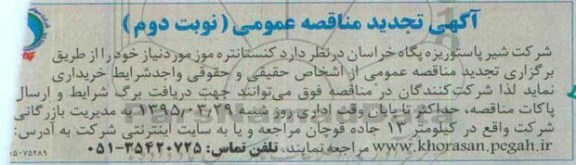 آگهی تجدید مناقصه عمومی ( نوبت دوم )
شرکت شیر پاستوریزه پگاه خراسان درنظر دارد کنسانتره موز مورد نیاز خود را از طریق
برگزاری تجدید مناقصه عمومی از اشخاص حقیقی و حقوقی واجد شرایط خریداری
نماید لذا شرکت کنندگان در مناقصه فوق می توانند جهت دریافت برگ شرایط و ارسال
پاکات مناقصه، حداکثر تا پایان وقت اداری روز شنبه ۱۳۹۵/۰۳/۲۹ به مدیریت بازرگانی
شرکت واقع در کیلومتر ۱۳ جاده قوچان مراجعه و یا به سایت اینترنتی شرکت به آدرس:
www.khorasan.pegah.ir مراجعه نمایند. تلفن تماس: ۳۵۴۲۰۷۲۵-۰۵۱